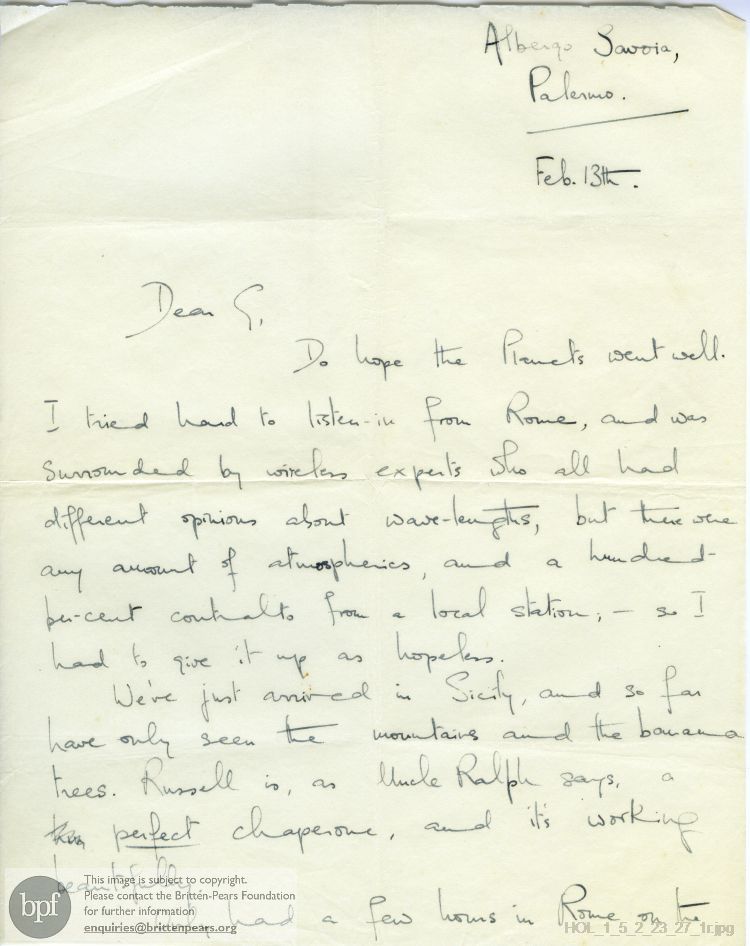 Albergo Savoia,
Palermo.
Feb. 13th.
Dear G,
Do hope the Planets went well.
I tried hard to listen-in from Rome, and was
surrounded by wireless experts who all had
different opinions about wave-lengths, but there were
any amount of atmospherics, and a hundred-
per-cent contralto from a local station; — so I
had to give it up as hopeless.
We've just arrived in Sicily, and so far
have only seen the mountains and the banana
trees. Russell is, as Uncle Ralph says, a
perfect chaperone, and it's working
beautifully.
had a few hours in Rome on the
bpf
This image is subject to copyright.
Please contact the Britten-Pears Foundation
for further information
enquiries@brittenpears.org
HOL_1_5_2_23_27_1r.jpg